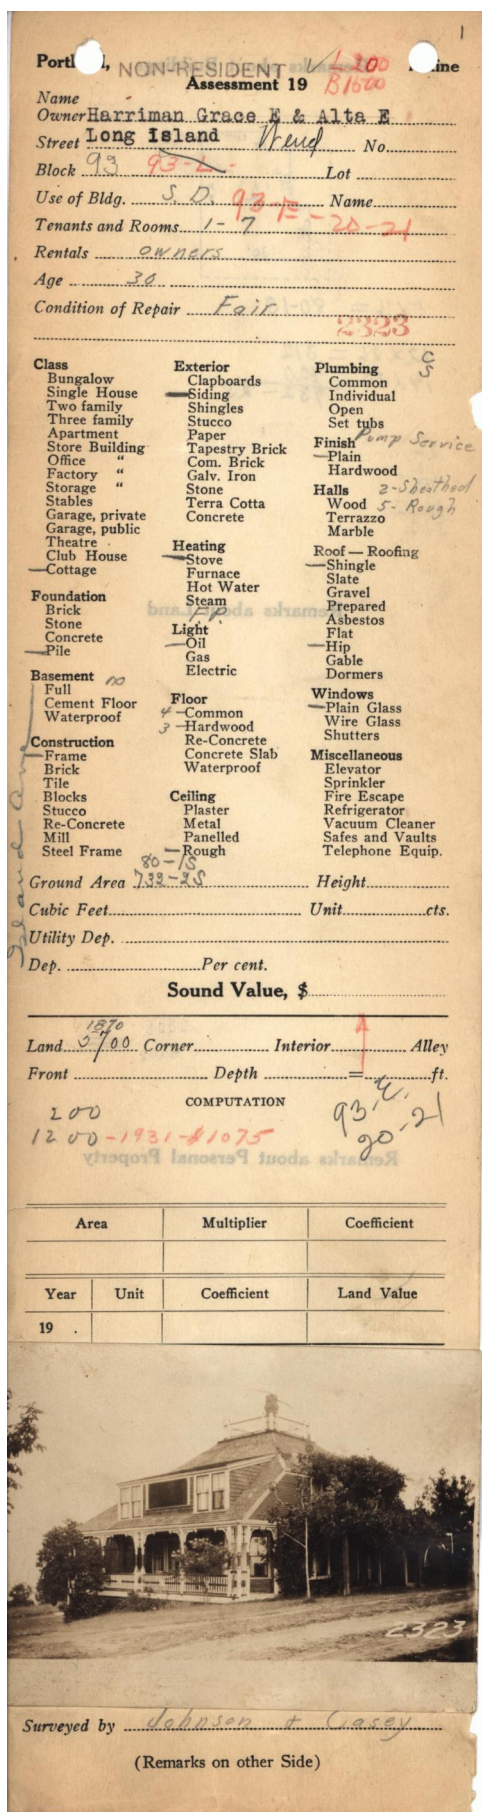 1
Portl d, NON-RESIDENT L 200 ine
Assessment 19 B 1600
Name
Owner Harriman Grace E & Alta E
Street Long Island W end No.
Block 93 93-L- Lot
Use of Bldg. S. D. 93-E-20-21 Name
Tenants and Rooms 1-7
Rentals owners
Age 30
Condition of Repair Fair
2323
C
S
Class
Bungalow
Single House
Two family
Three family
Apartment
Store Building
Office "
Factory "
Storage "
Stables
Garage, private
Garage, public
Theatre
Club House
Cottage
Foundation
Brick
Stone
Concrete
Pile
Basement no
Full
Cement Floor
Waterproof
Construction
Frame
Brick
Tile
Blocks
Stucco
Re-Concrete
Mill
Steel Frame
Island Ave
Exterior
Clapboards
Siding
Shingles
Stucco
Paper
Tapestry Brick
Com. Brick
Galv. Iron
Stone
Terra Cotta
Concrete
Heating
Stove
Furnace
Hot Water
Steam
F.P.
Light
Oil
Gas
Electric
Floor
4 Common
3 Hardwood
Re-Concrete
Concrete Slab
Waterproof
Ceiling
Plaster
Metal
Panelled
Rough
Plumbing
Common
Individual
Open
Set tubs
Pump Service
Finish
Plain
Hardwood
Halls 2-Sheathed
Wood 5-Rough
Terrazzo
Marble
Roof — Roofing
Shingle
Slate
Gravel
Prepared
Asbestos
Flat
Hip
Gable
Dormers
Windows
Plain Glass
Wire Glass
Shutters
Miscellaneous
Elevator
Sprinkler
Fire Escape
Refrigerator
Vacuum Cleaner
Safes and Vaults
Telephone Equip.
80-1S
Ground Area 732-2S Height
Cubic Feet Unit cts.
Utility Dep.
Dep. Per cent.
Sound Value, $
1870
Land 5700 Corner Interior Alley
Front Depth = ft.
COMPUTATION
200
1200-1931-$1075
93.E.
20.21
Area Multiplier Coefficient
Year Unit Coefficient Land Value
19 .
2323
Surveyed by Johnson + Casey
(Remarks on other Side)